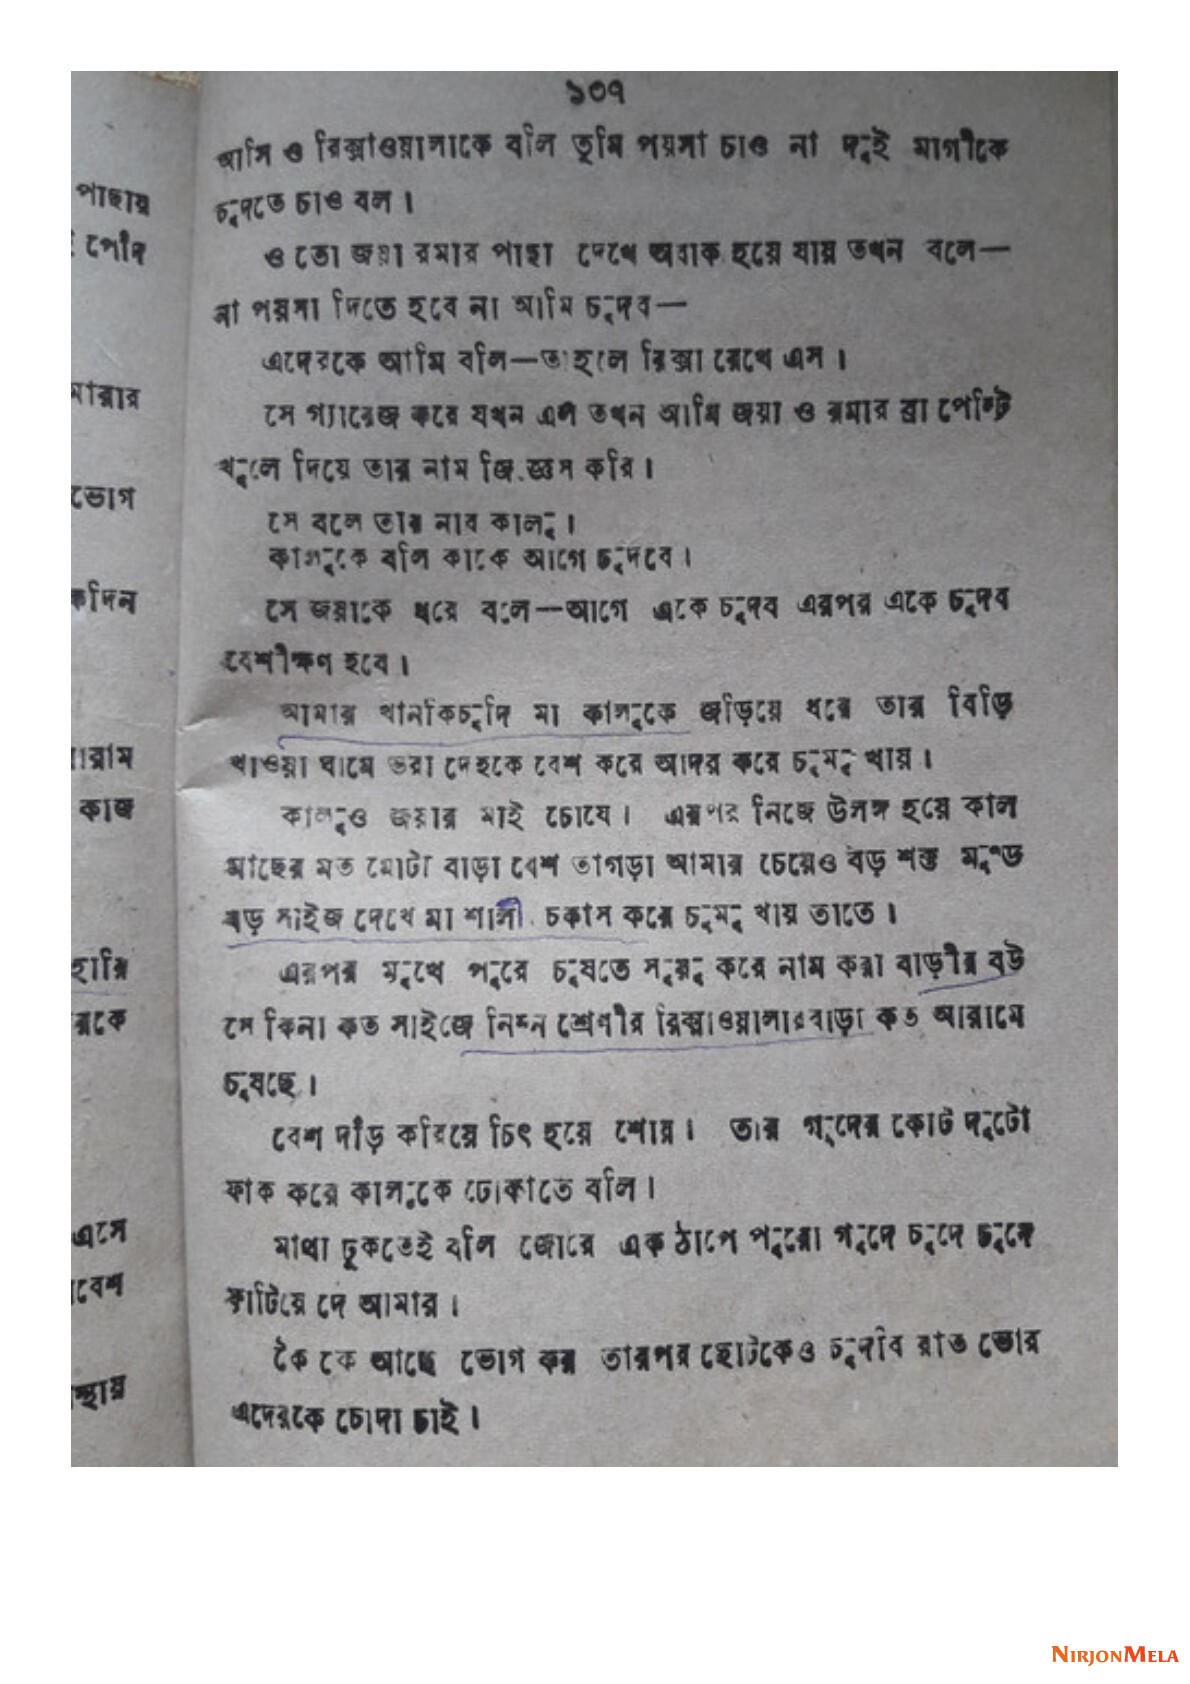 ১৩৭
আমি ও রিক্সাওয়ালাকে বলি তুমি পয়সা চাও না দুই মাগীকে
চুদতে চাও বল।
ও তো জয়া রমার পাছা দেখে অবাক হয়ে যায় তখন বলে—
না পয়সা দিতে হবে না আমি চুদব—
এদেরকে আমি বলি—তাহলে রিক্সা রেখে এস।
সে গ্যারেজ করে যখন এল তখন আমি জয়া ও রমার ব্রা পেন্টি
খুলে দিয়ে তার নাম জি.জ্ঞস করি।
সে বলে তার নাব কালু।
কালুকে বলি কাকে আগে চুদবে।
সে জয়াকে ধরে বলে—আগে একে চুদব এরপর একে চুদব
বেশীক্ষণ হবে।
আমার খানকিচুদি মা কালুকে জড়িয়ে ধরে তার বিড়ি
খাওয়া ঘামে ভরা দেহকে বেশ করে আদর করে চুমু খায়।
কালুও জয়ার মাই চোষে। এরপর নিজে উলঙ্গ হয়ে কাল
মাছের মত মোটা বাড়া বেশ তাগড়া আমার চেয়েও বড় শক্ত মুণ্ড
বড় সাইজ দেখে মা শালী চকাস করে চুমু খায় তাতে।
এরপর মুখে পুরে চুষতে সুরু করে নাম করা বাড়ীর বউ
সে কিনা কত সাইজে নিম্ন শ্রেণীর রিক্সাওয়ালার বাড়া কত আরামে
চুষছে।
বেশ দাঁড় করিয়ে চিৎ হয়ে শোয়। তার গুদের কোট দুটো
ফাক করে কালুকে ঢোকাতে বলি।
মাথা ঢুকতেই বলি জোরে এক ঠাপে পুরো গুদে চুদে চুদে
ফাটিয়ে দে আমার।
কৈ কে আছে ভোগ কর তারপর ছোটকেও চুদবি রাত ভোর
এদেরকে চোদা চাই।
পাছায়
পোঁদ
মারার
ভোগ
কদিন
রাম
কাজ
হারি
রকে
এসে
বেশ
স্থায়
NIRJONMELA